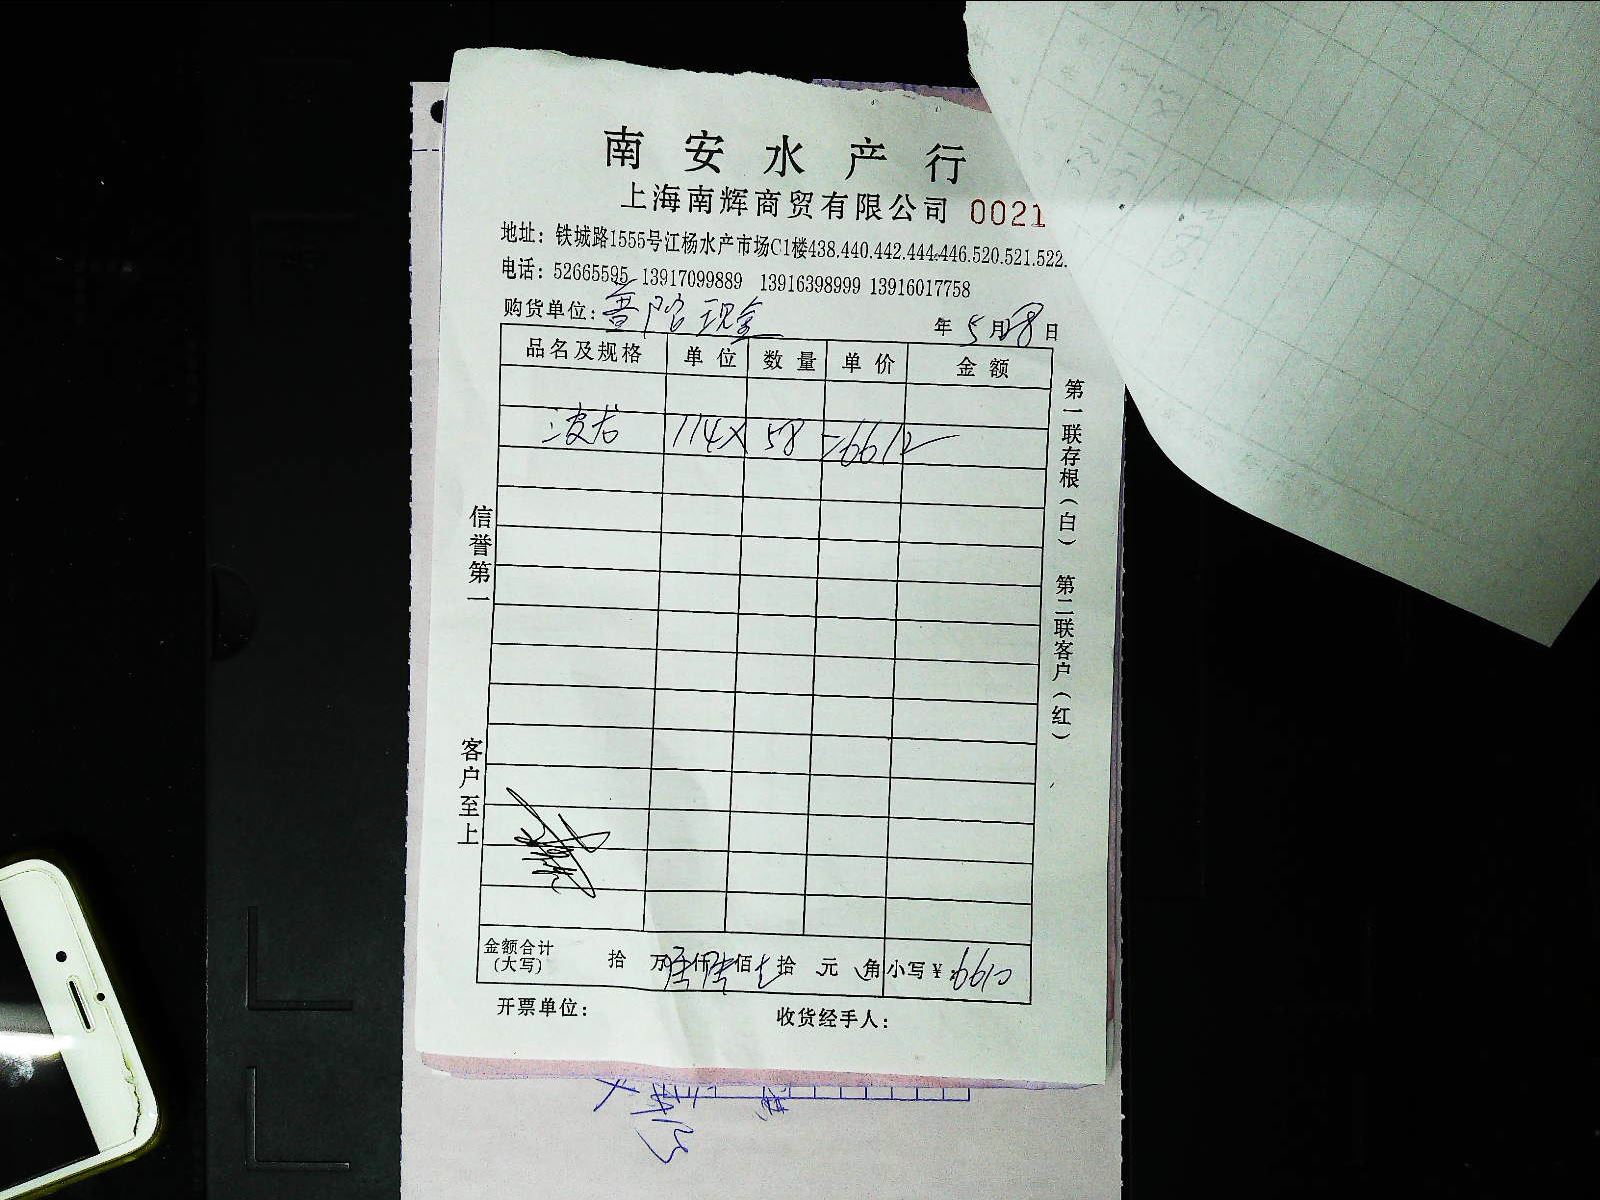 南安水产行
上海南辉商贸有限公司 0021
地址：铁城路1555号江杨水产市场C1楼438.440.442.444.446.520.521.522.
电话：52665595 13917099889 13916398999 13916017758
购货单位：普陀现金 年5月28日
品名及规格 单位 数量 单价 金额
波龙 114× 58 =6612
金额合计（大写） 拾 万 陆仟陆佰 拾 元 角 小写￥：6610
开票单位： 收货经手人：
信誉第一 客户至上
第一联存根（白） 第二联客户（红）